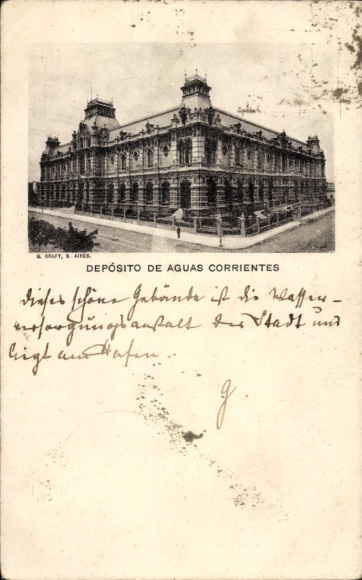 G. KRAFT, B. AIRES.
DEPÓSITO DE AGUAS CORRIENTES
dieses schöne Gebäude ist die Wasser-
versorgungsanstalt der Stadt und
liegt am Hafen.
G